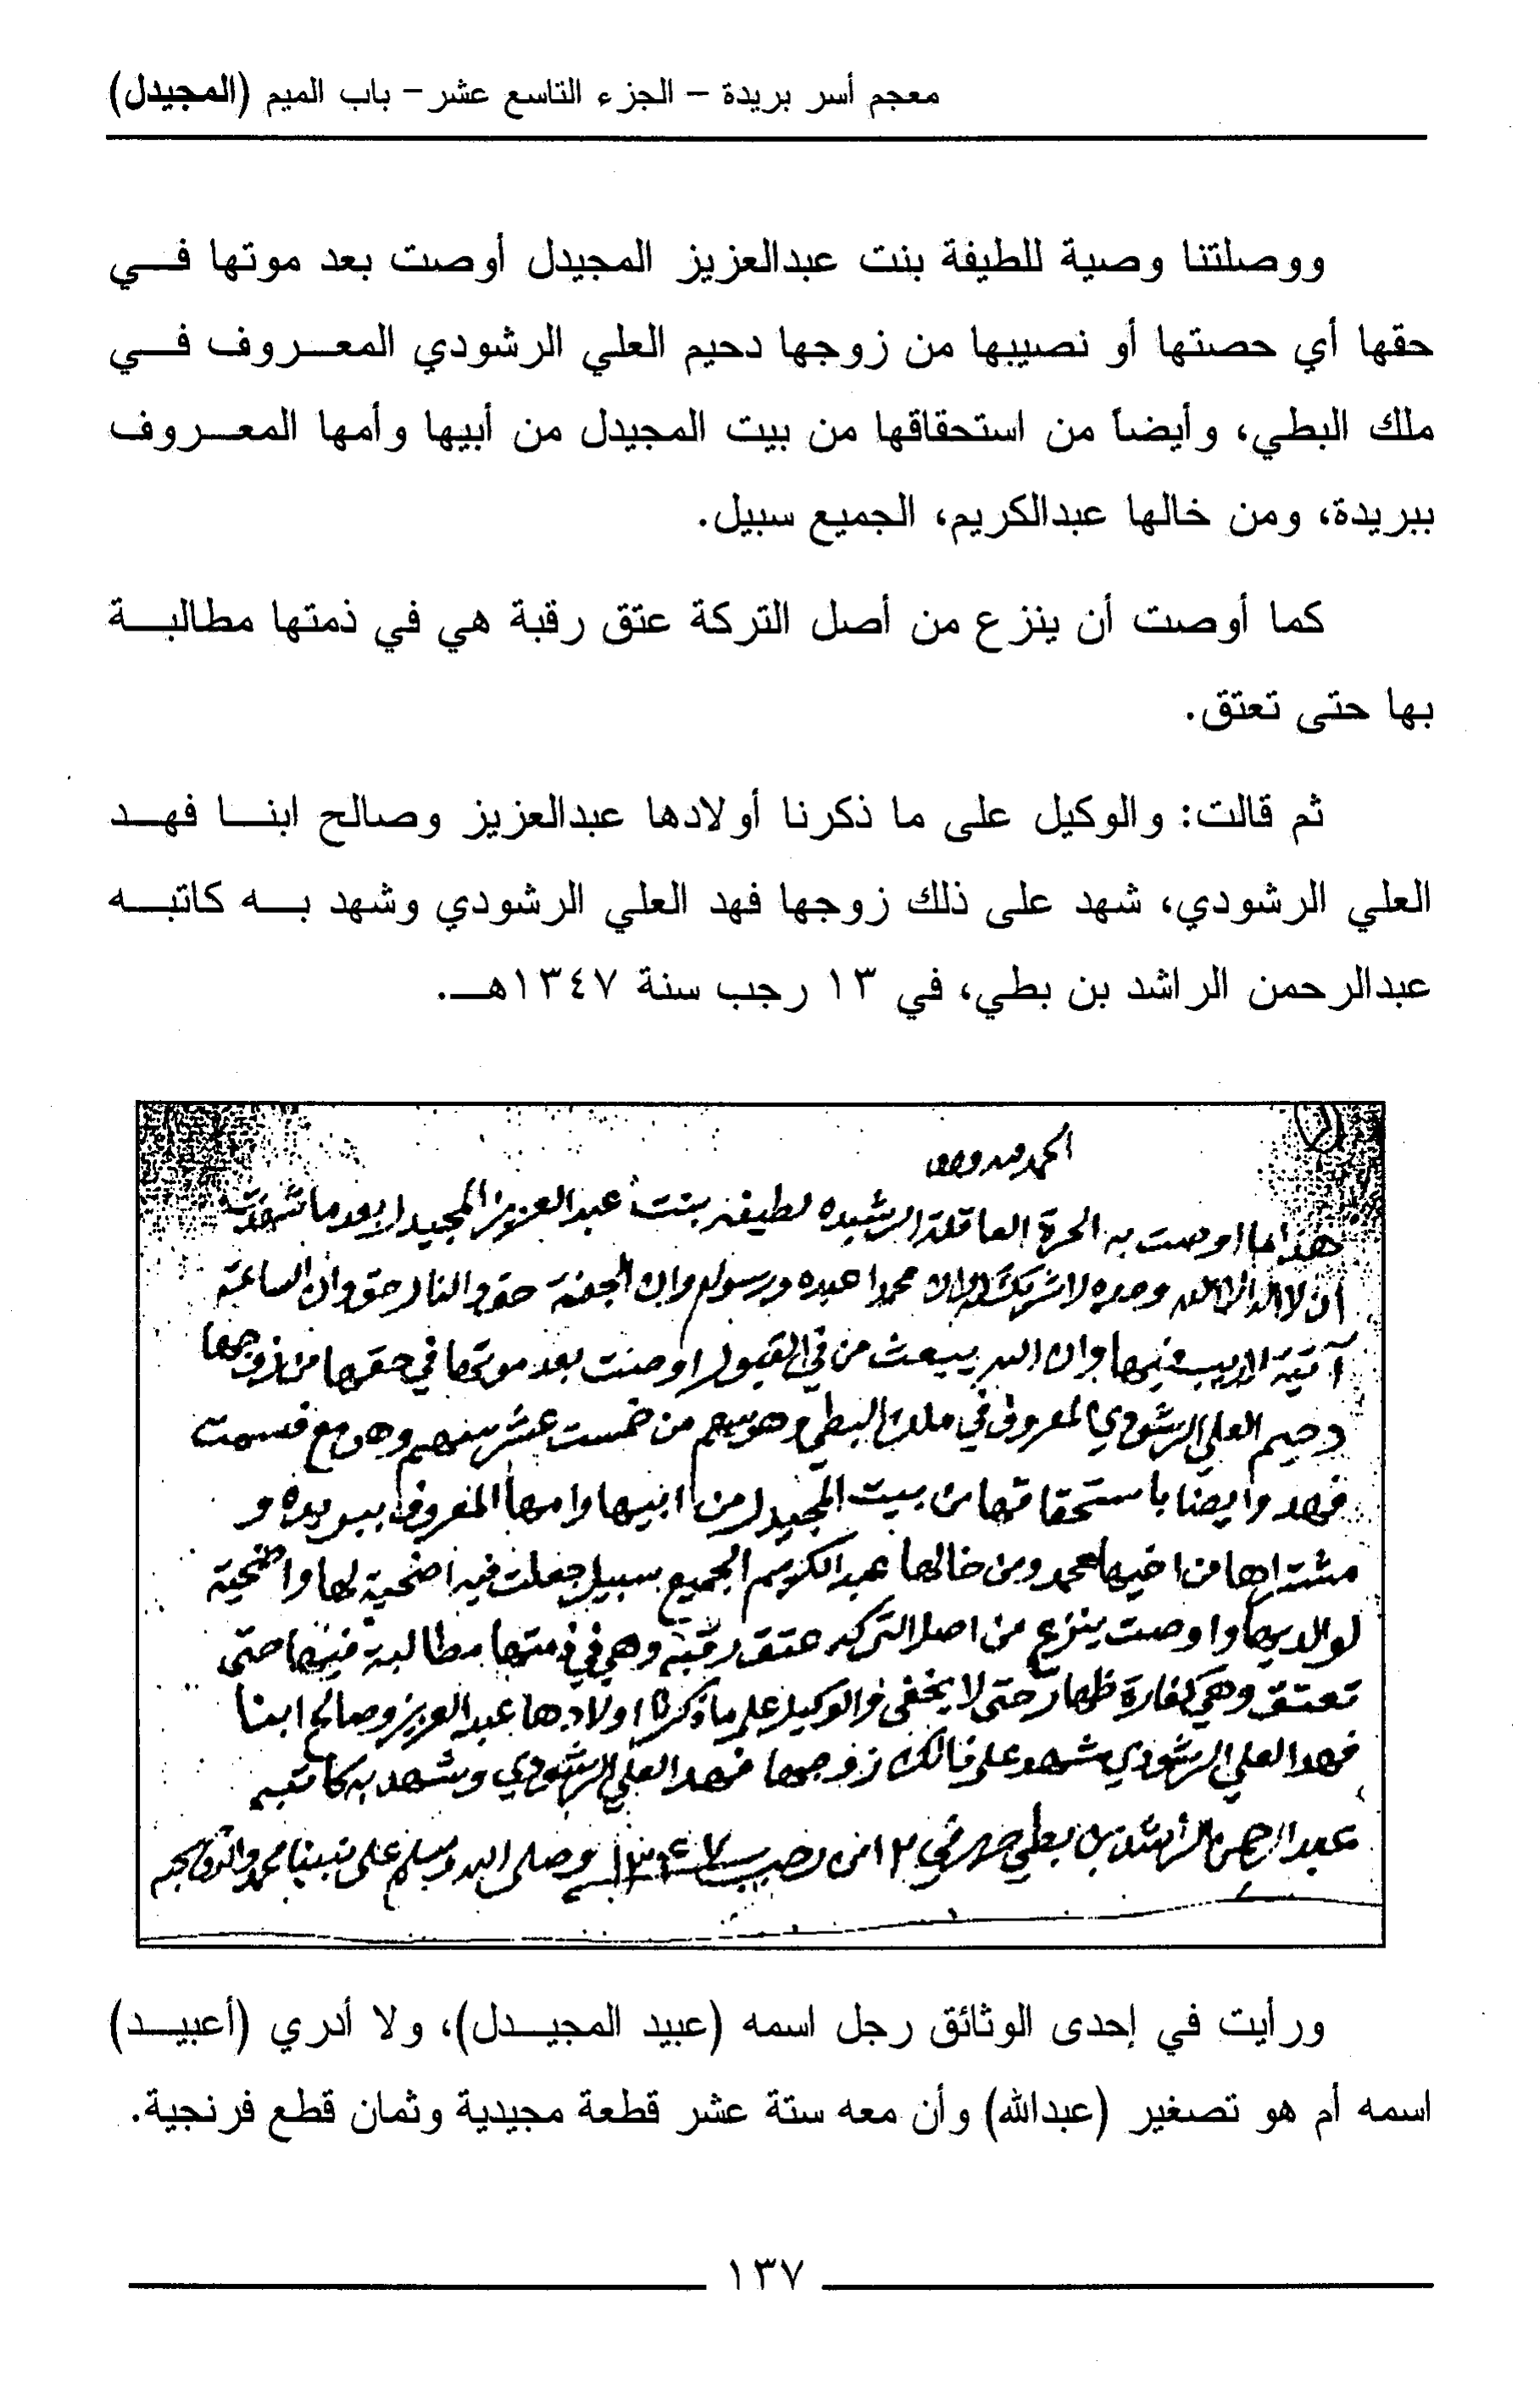 معجم أسر بريدة – الجزء التاسع عشر – باب الميم (المجيدل)
ووصلتنا وصية للطيفة بنت عبدالعزيز المجيدل أوصت بعد موتها في
حقها أي حصتها أو نصيبها من زوجها دحيم العلي الرشودي المعروف في
ملك البطي، وأيضاً من استحقاقها من بيت المجيدل من أبيها وأمها المعروف
ببريدة، ومن خالها عبدالكريم، الجميع سبيل.
كما أوصت أن ينزع من أصل التركة عتق رقبة هي في ذمتها مطالبة
بها حتى تعتق.
ثم قالت: والوكيل على ما ذكرنا أولادها عبدالعزيز وصالح ابنا فهد
العلي الرشودي، شهد على ذلك زوجها فهد العلي الرشودي وشهد به كاتبه
عبدالرحمن الراشد بن بطي، في ١٣ رجب سنة ١٣٤٧هـ.
الحمد لله وحده
هذا ما اوصت به الحرة العاقلة الرشيده لطيفه بنت عبدالعزيز المجيدل بعد ما شهدت
ان لا اله الا الله وحده لا شريك له وان محمدا عبده ورسوله وان الجنة حق والنار حق وان الساعة
آتية لا ريب فيها وان الله يبعث من في القبور اوصت بعد موتها في حقها من زوجها
دحيم العلي الرشودي المعروف في ملك البطي وهو سهم من خمست عشر سهم وهن مع قسمت
فهد وايضا با ستحقاقها من بيت المجيدل من ابيها وامها المعروف ببريده و
مشتراها من اخيها محمد ومن خالها عبدالكريم الجميع سبيل جعلت فيه اضحية لها واضحية
لوالديها واوصت ينزع من اصل التركه عتق رقبه وهي في ذمتها مطالبة فيها حتى
تعتق وهي كفارة ظهار حتى لا يخفى والوكيل على ما ذكرنا اولادها عبدالعزيز وصالح ابنا
فهد العلي الرشودي شهد على ذالك زوجها فهد العلي الرشودي وشهد به كاتبه
عبدالرحمن الراشد بن بطي في ١٣ من رجب ١٣٤٧ وصلى الله وسلم على نبينا محمد واله وصحبه
ورأيت في إحدى الوثائق رجل اسمه (عبيد المجيدل)، ولا أدري (أعبيد)
اسمه أم هو تصغير (عبدالله) وأن معه ستة عشر قطعة مجيدية وثمان قطع فرنجية.
١٣٧